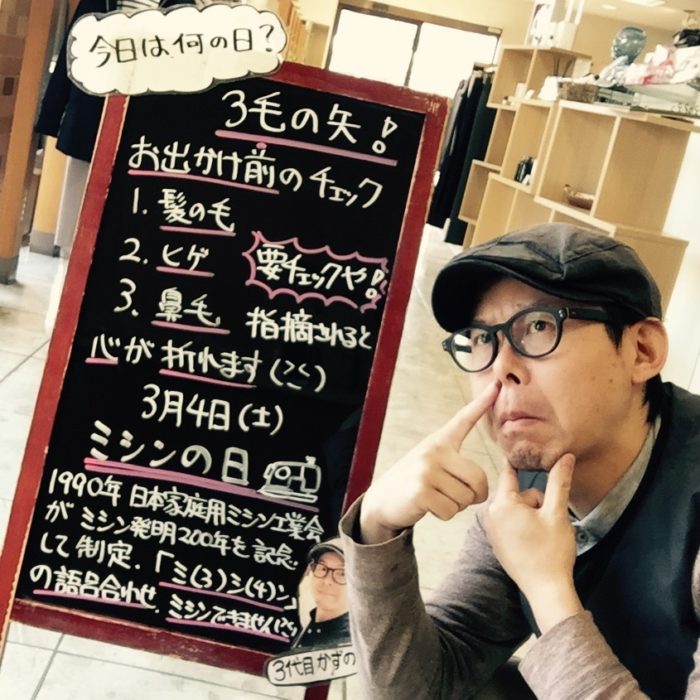 今日は何の日?
3毛の矢!
お出かけ前のチェック
1. 髪の毛
2. ヒゲ
要チェックや!
3. 鼻毛 指摘されると
心が折れます(こく)
3月4日(土)
ミシンの日
1990年 日本家庭用ミシン工業会
がミシン発明200年を記念
して制定.「ミ(3)シ(4)ン」
の語呂合わせ. ミシンできません
3代目かずの